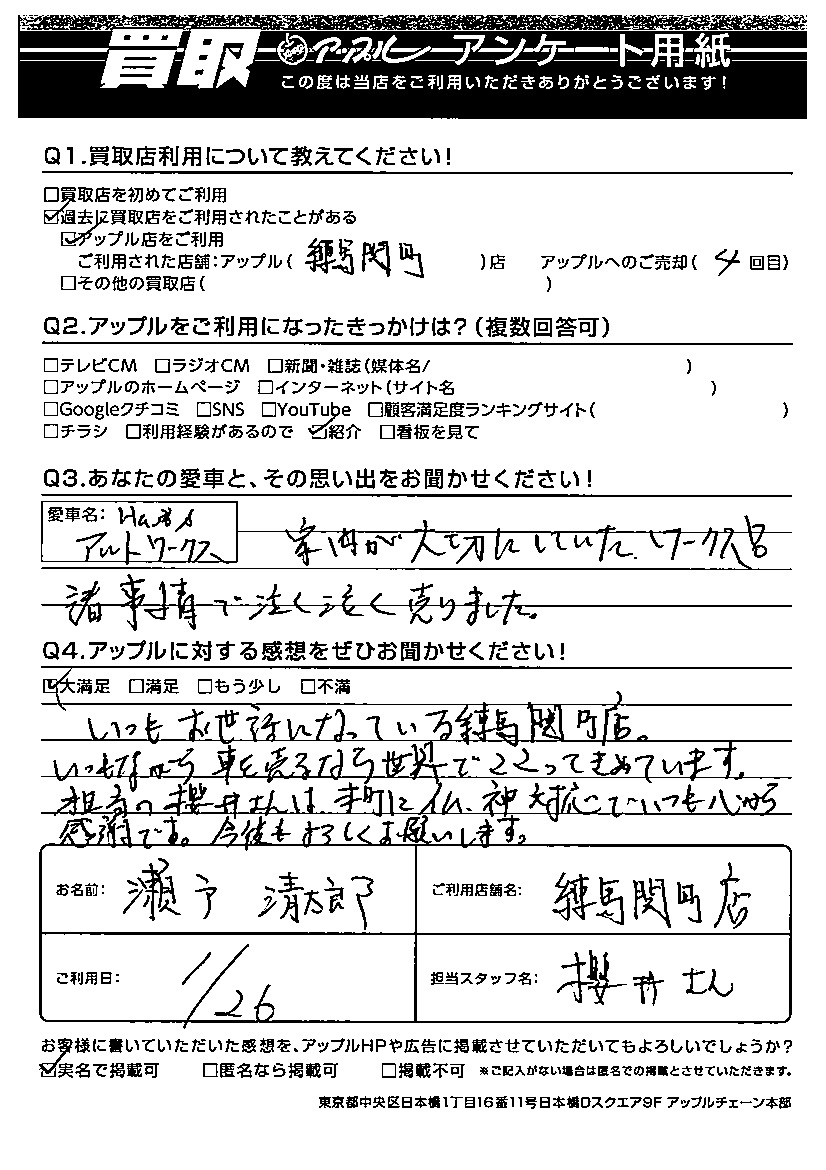 買取 アップル アンケート用紙
この度は当店をご利用いただきありがとうございます!
Q1.買取店利用について教えてください!
□買取店を初めてご利用
☑過去に買取店をご利用されたことがある
☑アップル店をご利用
ご利用された店舗:アップル( 練馬関町 )店 アップルへのご売却( 4 回目)
□その他の買取店( )
Q2.アップルをご利用になったきっかけは?(複数回答可)
□テレビCM □ラジオCM □新聞・雑誌(媒体名/ )
□アップルのホームページ □インターネット(サイト名 )
□Googleクチコミ □SNS □YouTube □顧客満足度ランキングサイト( )
□チラシ □利用経験があるので ☑紹介 □看板を見て
Q3.あなたの愛車と、その思い出をお聞かせください!
愛車名:
アルトワークス 家内が大切にしていた、ワークス号
諸事情で泣く泣く売りました。
Q4.アップルに対する感想をぜひお聞かせください!
☑大満足 □満足 □もう少し □不満
いつもお世話になっている練馬関町店。
いつもながら車を売るなら世界でココってきめています。
担当の櫻井さんは 仏、神対応でいつも心から
感謝です。今後もよろしくお願いします。
お名前: 瀬戸 清太郎 ご利用店舗名: 練馬関町店
ご利用日: 1/26 担当スタッフ名: 櫻井さん
お客様に書いていただいた感想を、アップルHPや広告に掲載させていただいてもよろしいでしょうか?
☑実名で掲載可 □匿名なら掲載可 □掲載不可 ※ご記入がない場合は匿名での掲載とさせていただきます。
東京都中央区日本橋1丁目16番11号日本橋Dスクエア9F アップルチェーン本部